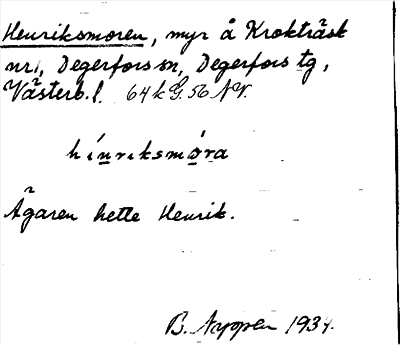 Henriksmoren, myr å Krokträsk
nr 1, Degerfors sn, Degerfors tg,
Västerb. l. 64 k G. 56 NV.
hínriksmóra
Ägaren hette Henrik.
B. Nyppen 1934.